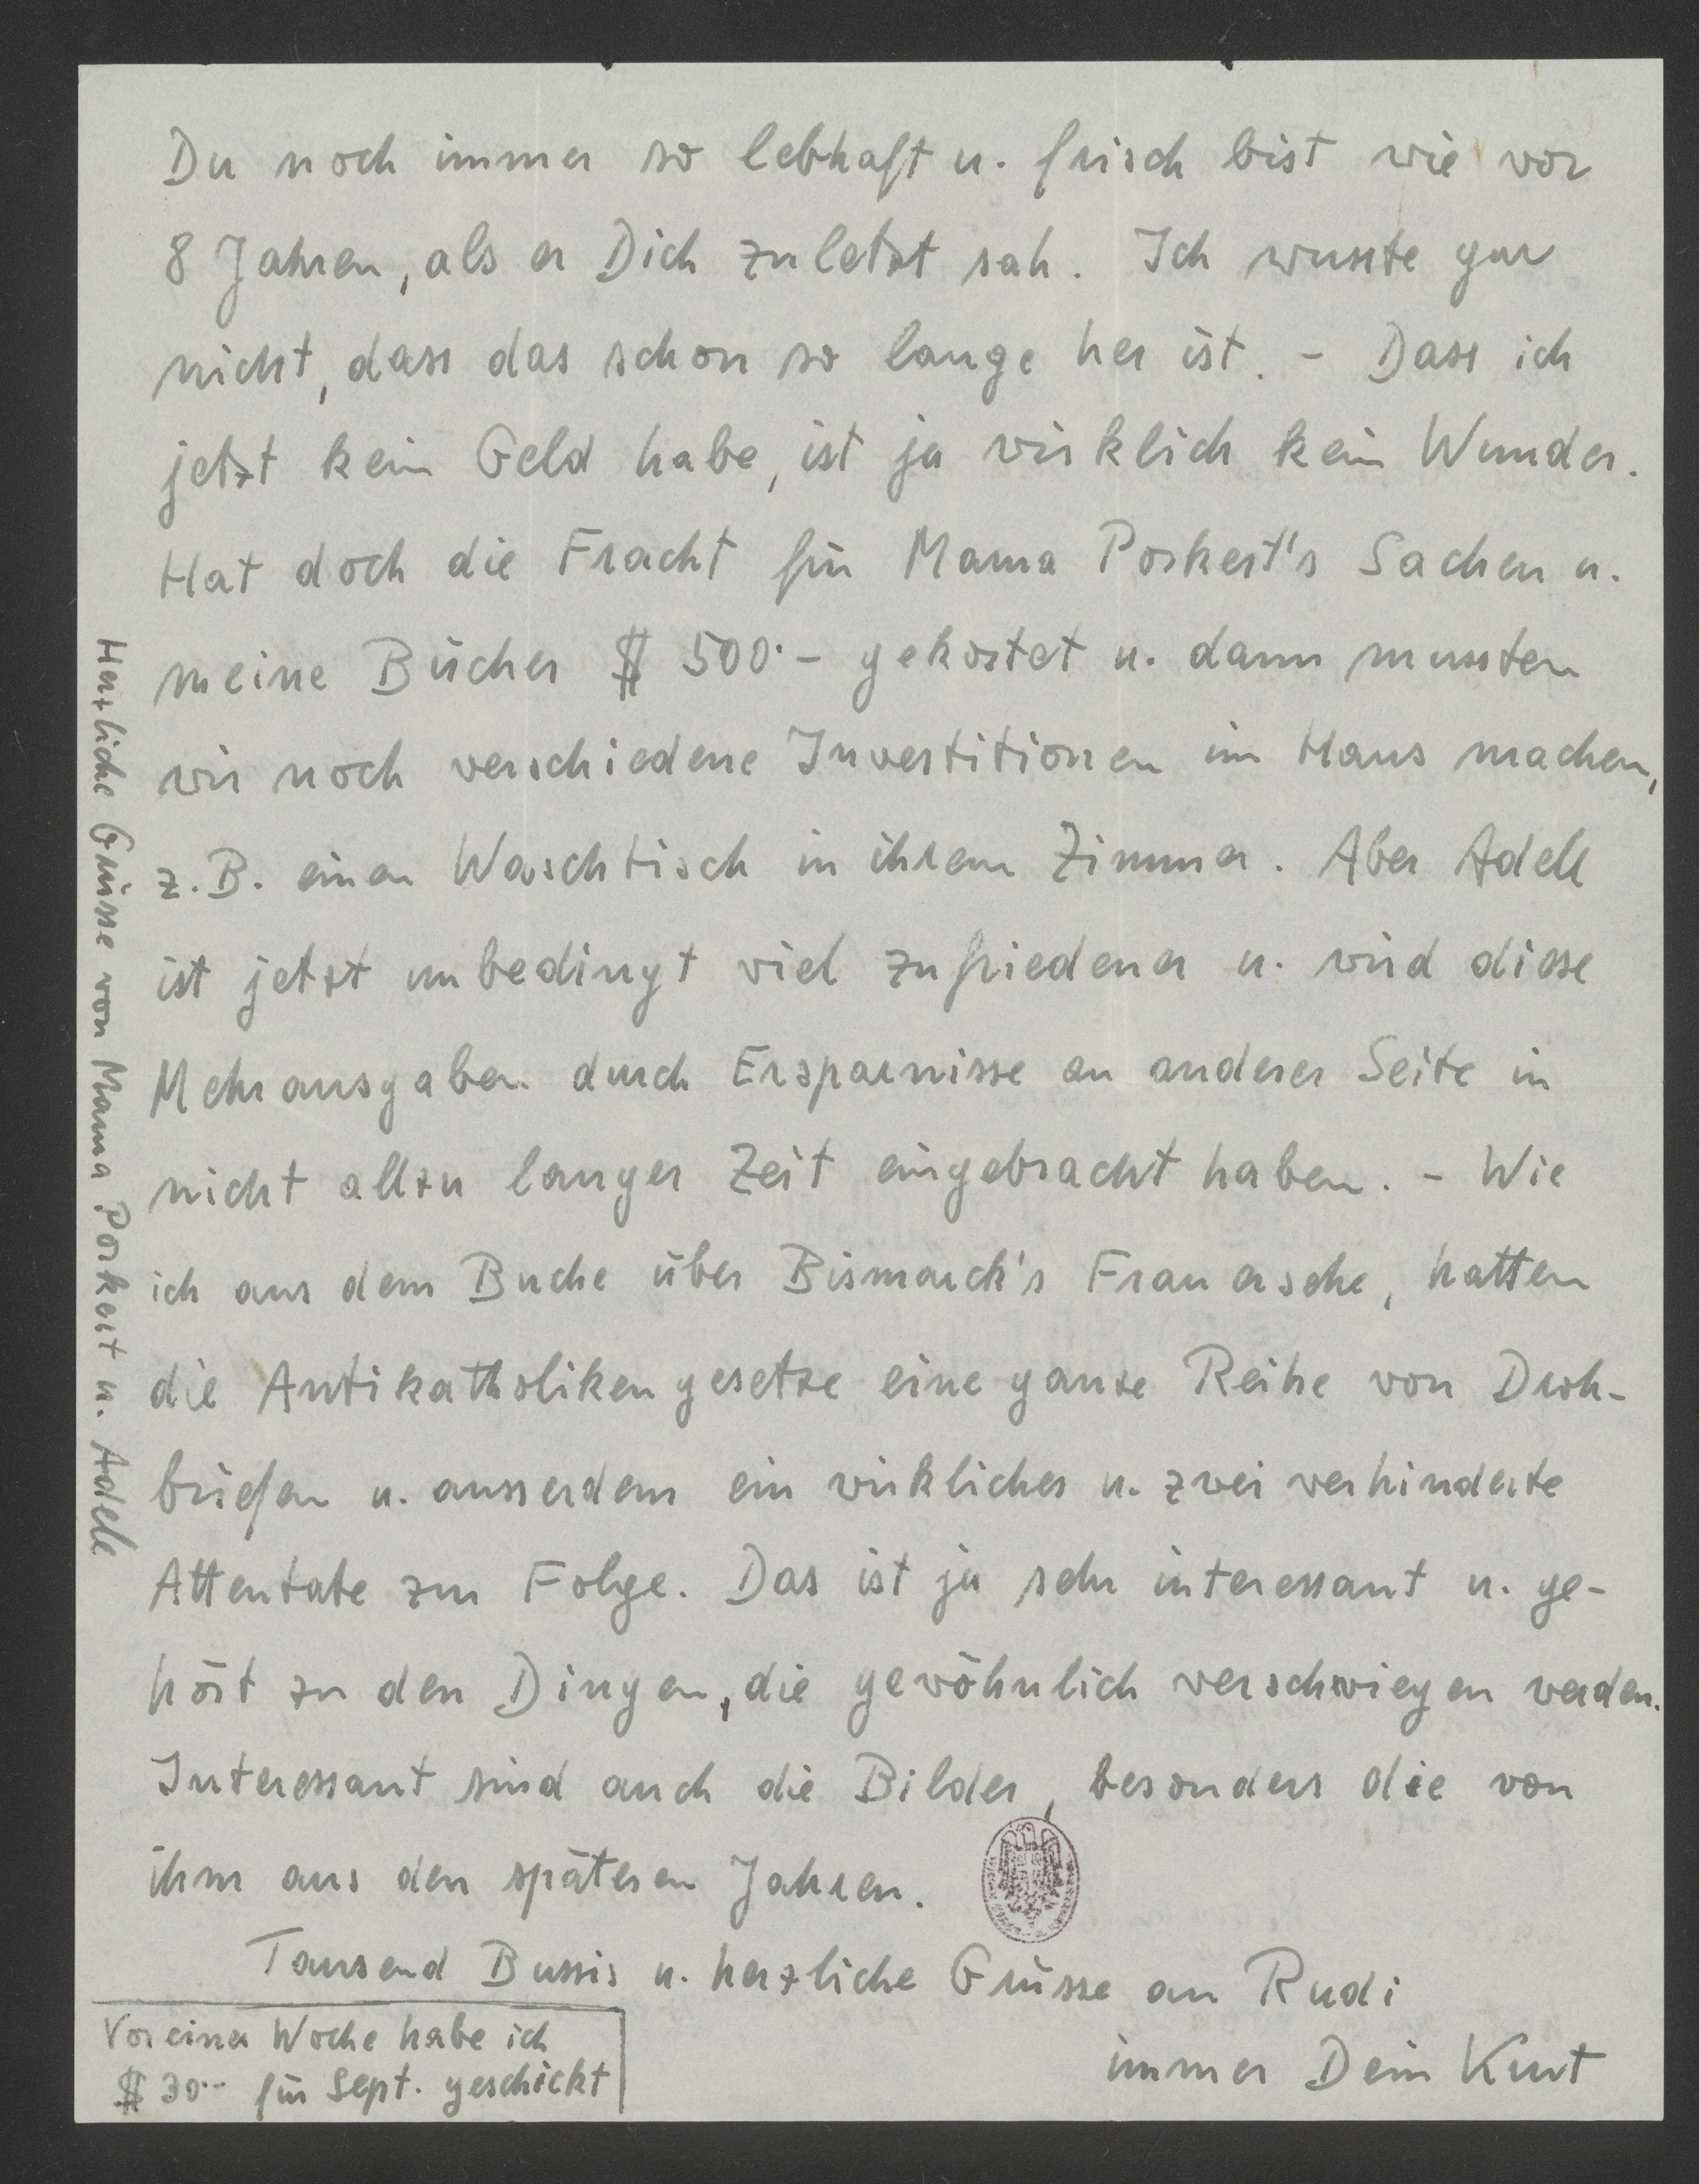 Du noch immer so lebhaft u. frisch bist wie vor
8 Jahren, als er Dich zuletzt sah. Ich wusste gar
nicht, dass das schon so lange her ist. - Dass ich
jetzt kein Geld habe, ist ja wirklich kein Wunder.
Hat doch die Fracht für Mama Porkert's Sachen u.
meine Bücher $ 500·- gekostet u. dann mussten
wir noch verschiedene Investitionen im Haus machen,
z.B. einen Waschtisch in ihrem Zimmer. Aber Adele
ist jetzt unbedingt viel zufriedener u. wird diese
Mehrausgaben durch Ersparnisse an anderer Seite in
nicht allzu langer Zeit eingebracht haben. - Wie
ich aus dem Buche über Bismarck's Frau ersehe, hatten
die Antikatholikengesetze eine ganze Reihe von Droh-
briefen u. ausserdem ein wirkliches u. zwei verhinderte
Attentate zur Folge. Das ist ja sehr interessant u. ge-
hört zu den Dingen, die gewöhnlich verschwiegen werden.
Interessant sind auch die Bilder, besonders die von
ihm aus den späteren Jahren.
Tausend Bussis u. herzliche Grüsse an Rudi
immer Dein Kurt
Vor einer Woche habe ich
$ 30·- für Sept. geschickt
Herzliche Grüsse von Mama Porkert u. Adele